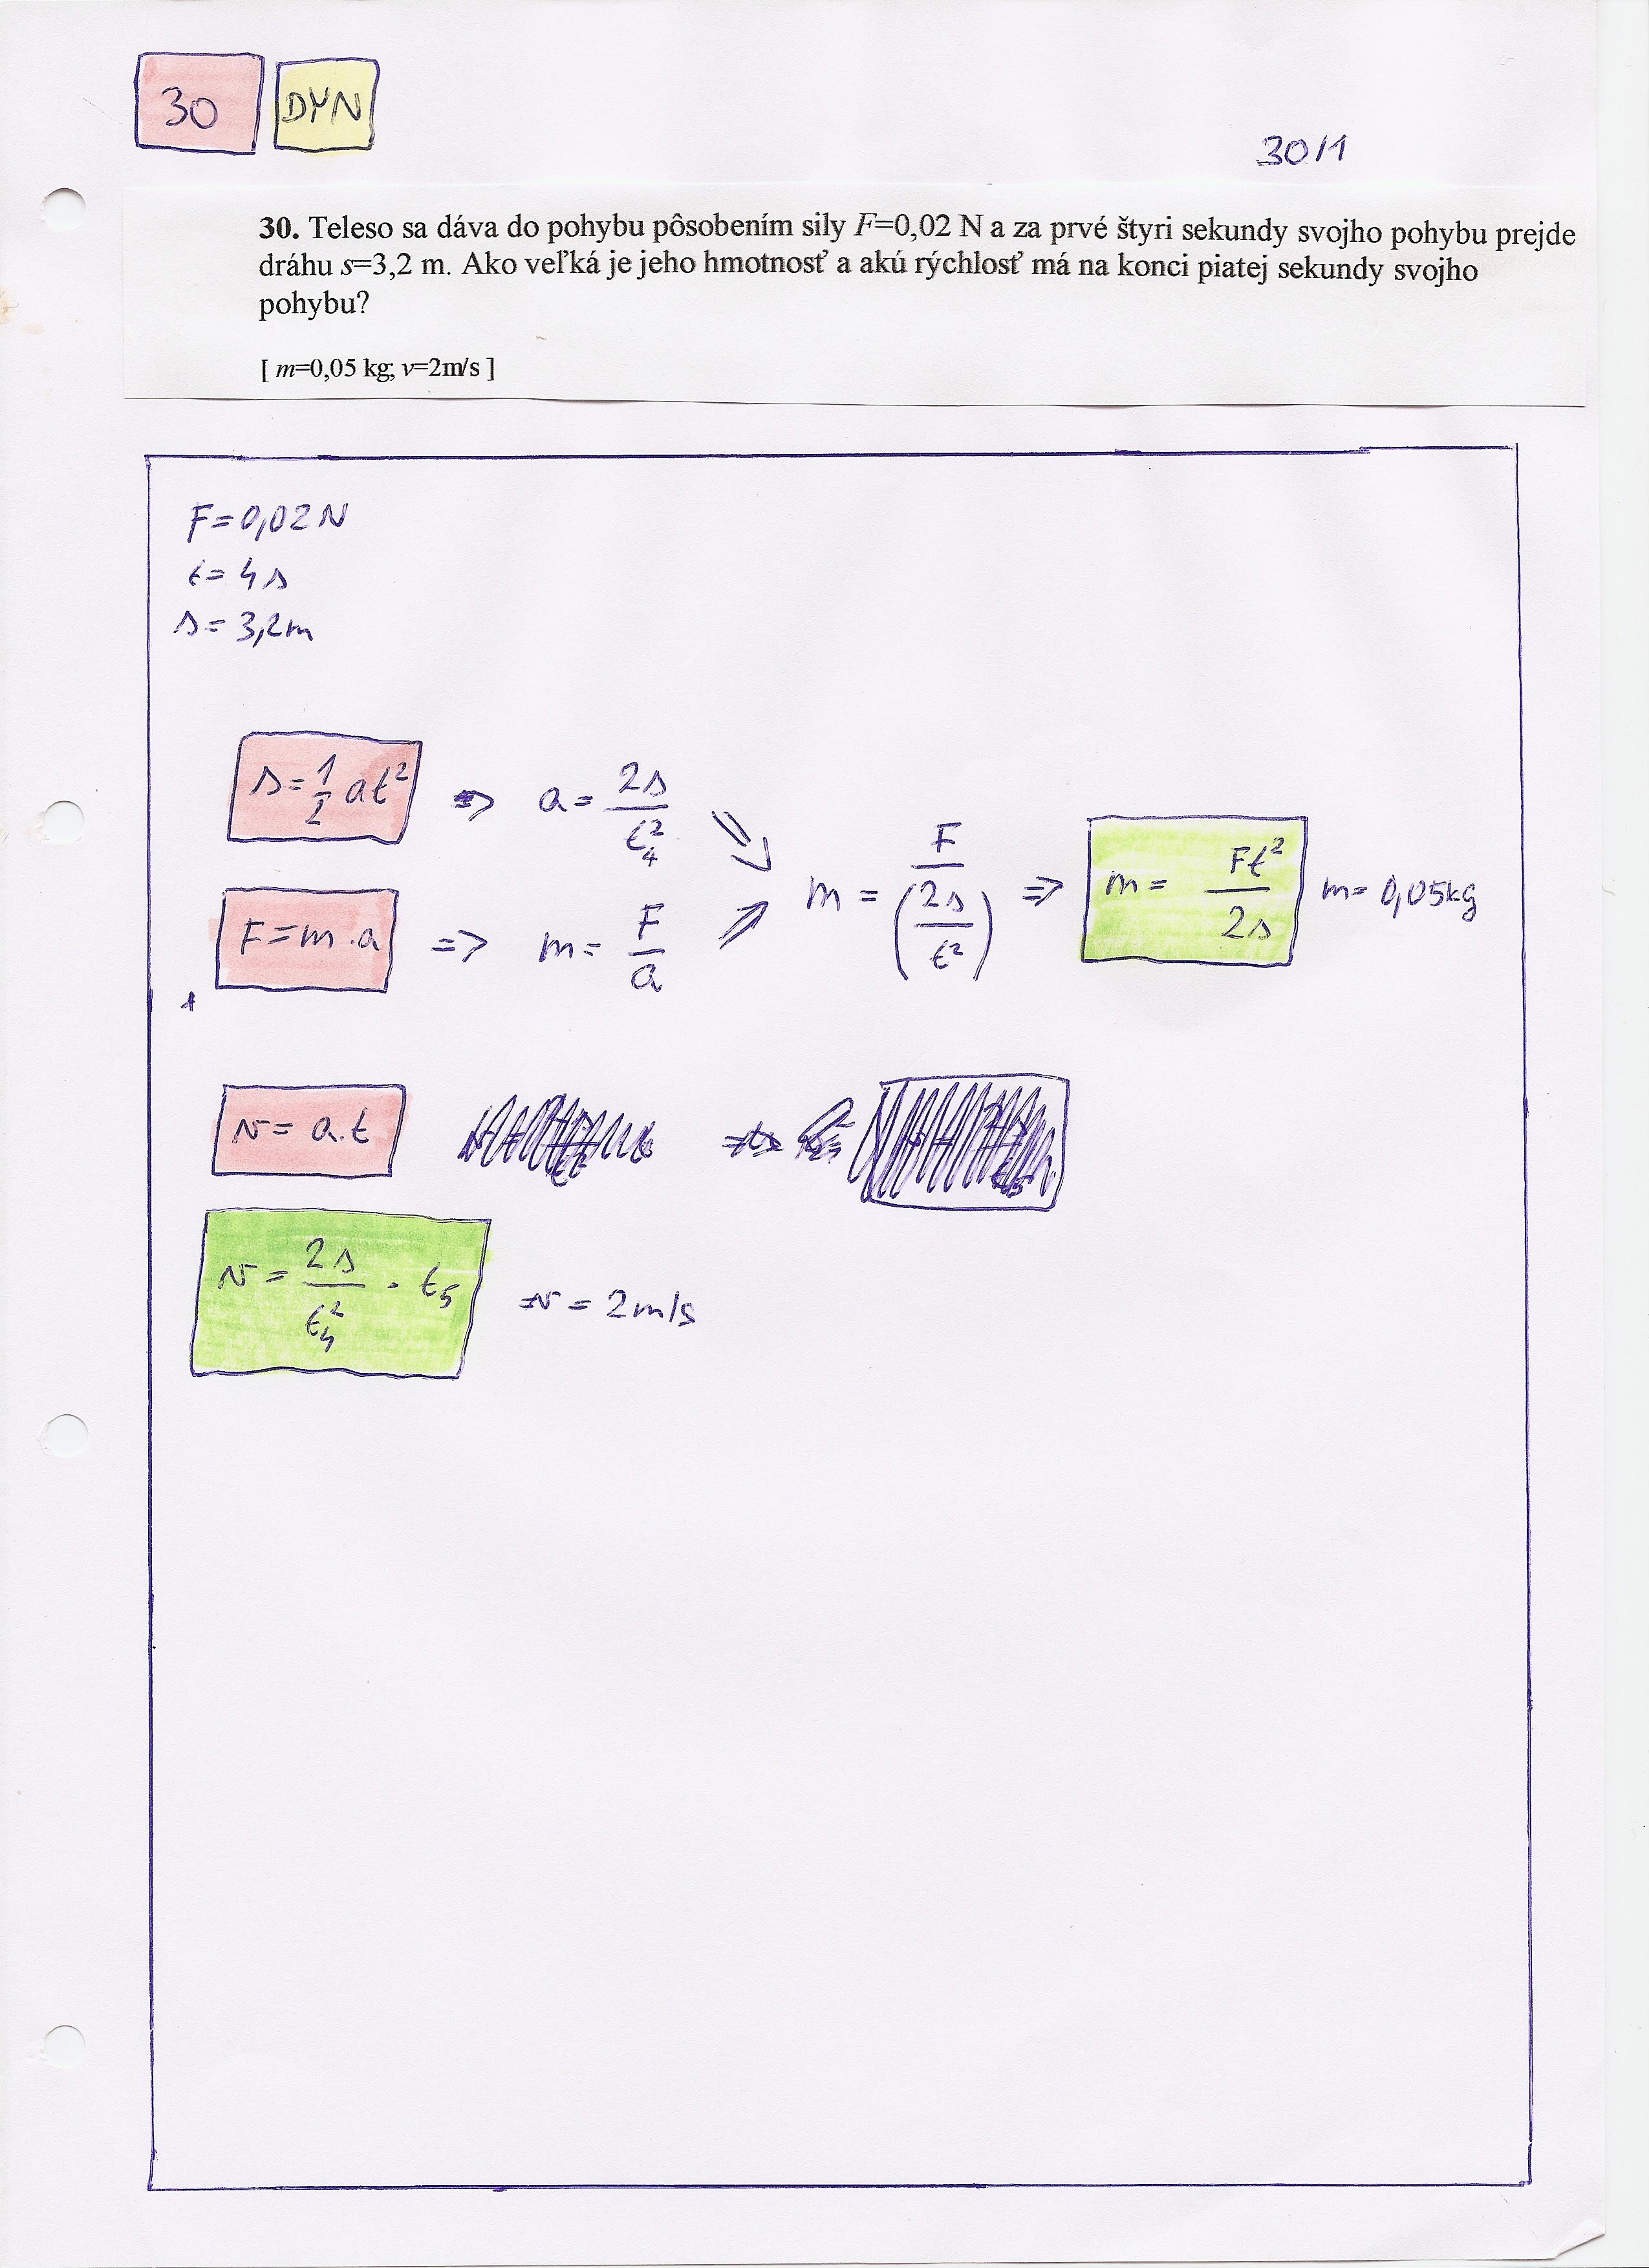 30 DYN
30/1
30. Teleso sa dáva do pohybu pôsobením sily F=0,02 N a za prvé štyri sekundy svojho pohybu prejde
dráhu s=3,2 m. Ako veľká je jeho hmotnosť a akú rýchlosť má na konci piatej sekundy svojho
pohybu?
[ m=0,05 kg; v=2m/s ]
F=0,02N
t=4s
s=3,2m
s=1/2 at² => a= 2s/t₄²
F=m.a => m= F/a
m= F/(2s/t²) => m= Ft²/2s m=0,05kg
v=a.t
v= 2s/t₄² · t₅ => v=2m/s